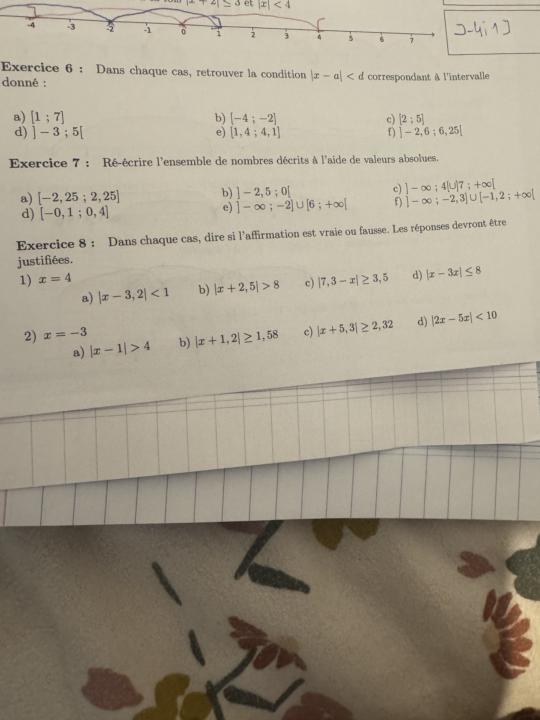 |x + 2| ≤ 3 et |x| < 4
-4 -3 -2 -1 0 1 2 3 4 5 6 7
]-4;1]
Exercice 6 : Dans chaque cas, retrouver la condition |x − a| < d correspondant à l'intervalle
donné :
a) [1 ; 7] b) [−4 ; −2] c) [2 ; 5]
d) ] − 3 ; 5[ e) [1, 4 ; 4, 1] f) ] − 2, 6 ; 6, 25[
Exercice 7 : Ré-écrire l'ensemble de nombres décrits à l'aide de valeurs absolues.
a) [−2, 25 ; 2, 25] b) ] − 2, 5 ; 0[ c) ] − ∞ ; 4[∪]7 ; +∞[
d) [−0, 1 ; 0, 4] e) ] − ∞ ; −2] ∪ [6 ; +∞[ f) ] − ∞ ; −2, 3] ∪ [−1, 2 ; +∞[
Exercice 8 : Dans chaque cas, dire si l'affirmation est vraie ou fausse. Les réponses devront être
justifiées.
1) x = 4
a) |x − 3, 2| < 1 b) |x + 2, 5| > 8 c) |7, 3 − x| ≥ 3, 5 d) |x − 3x| ≤ 8
2) x = −3
a) |x − 1| > 4 b) |x + 1, 2| ≥ 1, 58 c) |x + 5, 3| ≥ 2, 32 d) |2x − 5x| < 10